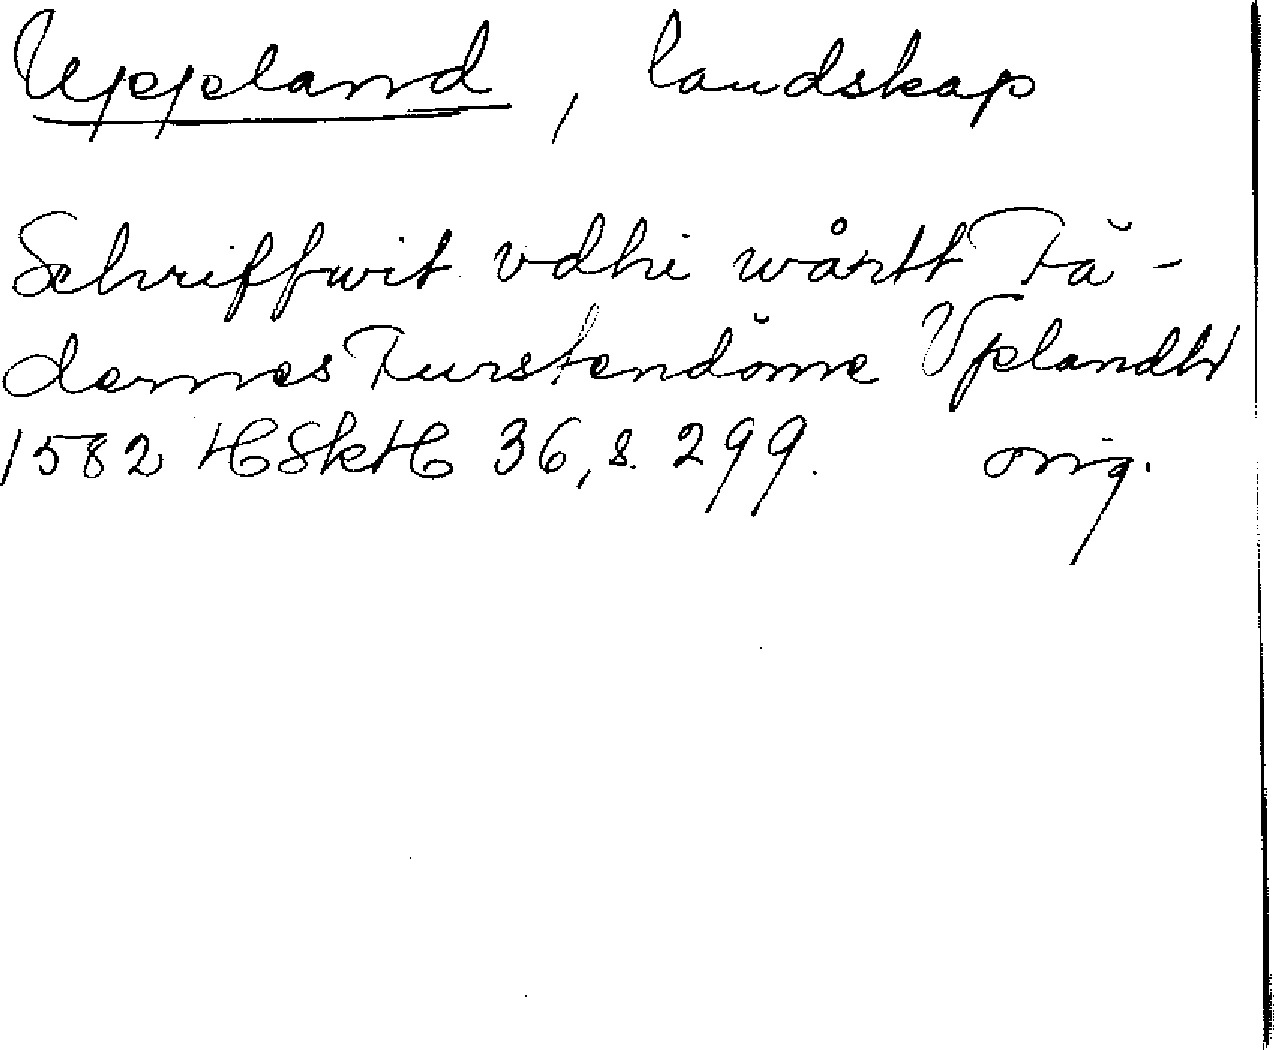 Uppland, landskap
Schriffwit vdhi wårtt Fä-
dernes Furstendöme Vplandh
1582 HSkH 36, s. 299. orig.